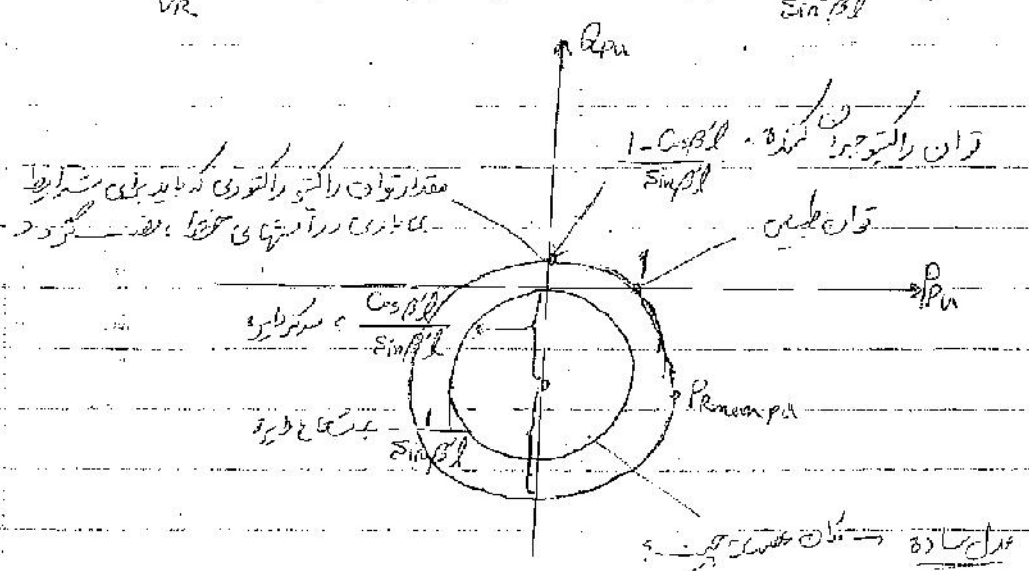 VR
Sin β'l
Qpu
توان راکتیو جبران کننده
1-Cosβ'l / Sinβ'l
مقدار توان راکتیو راکتوری که باید برای شرایط
بی باری در انتهای خط نصب گردد
توان طبیعی
1
Ppu
مرکز دایره Cosβ'l / Sinβ'l
PRmaxpu
شعاع دایره 1 / Sinβ'l
مدل ساده → مکان چیست؟